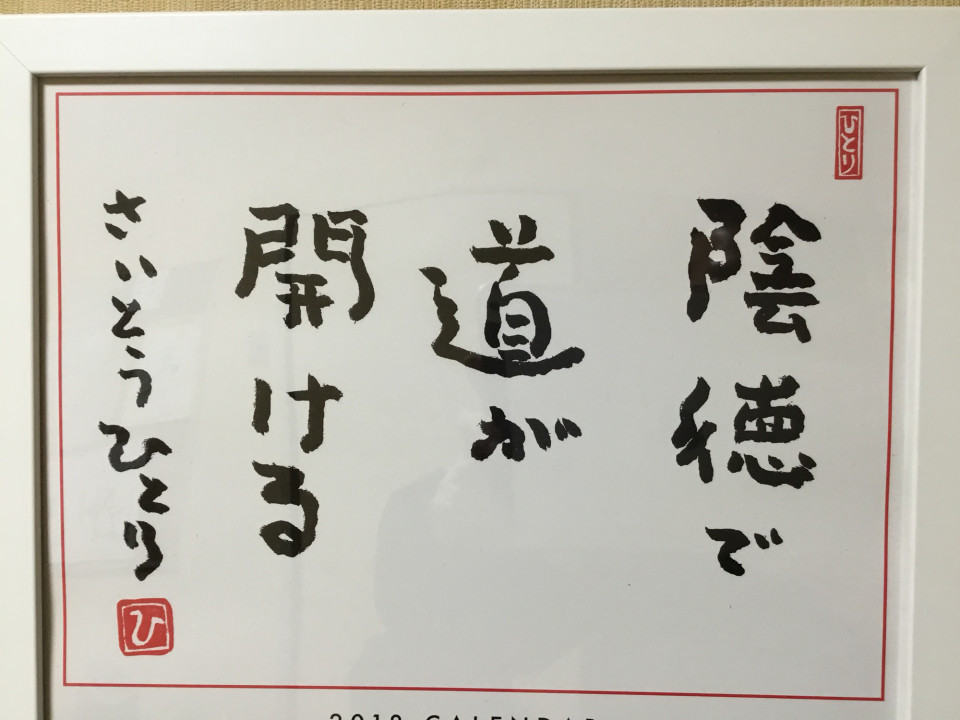 ひとり
陰徳で
道が
開ける
さいとうひとり
ひ
2018 CALENDAR